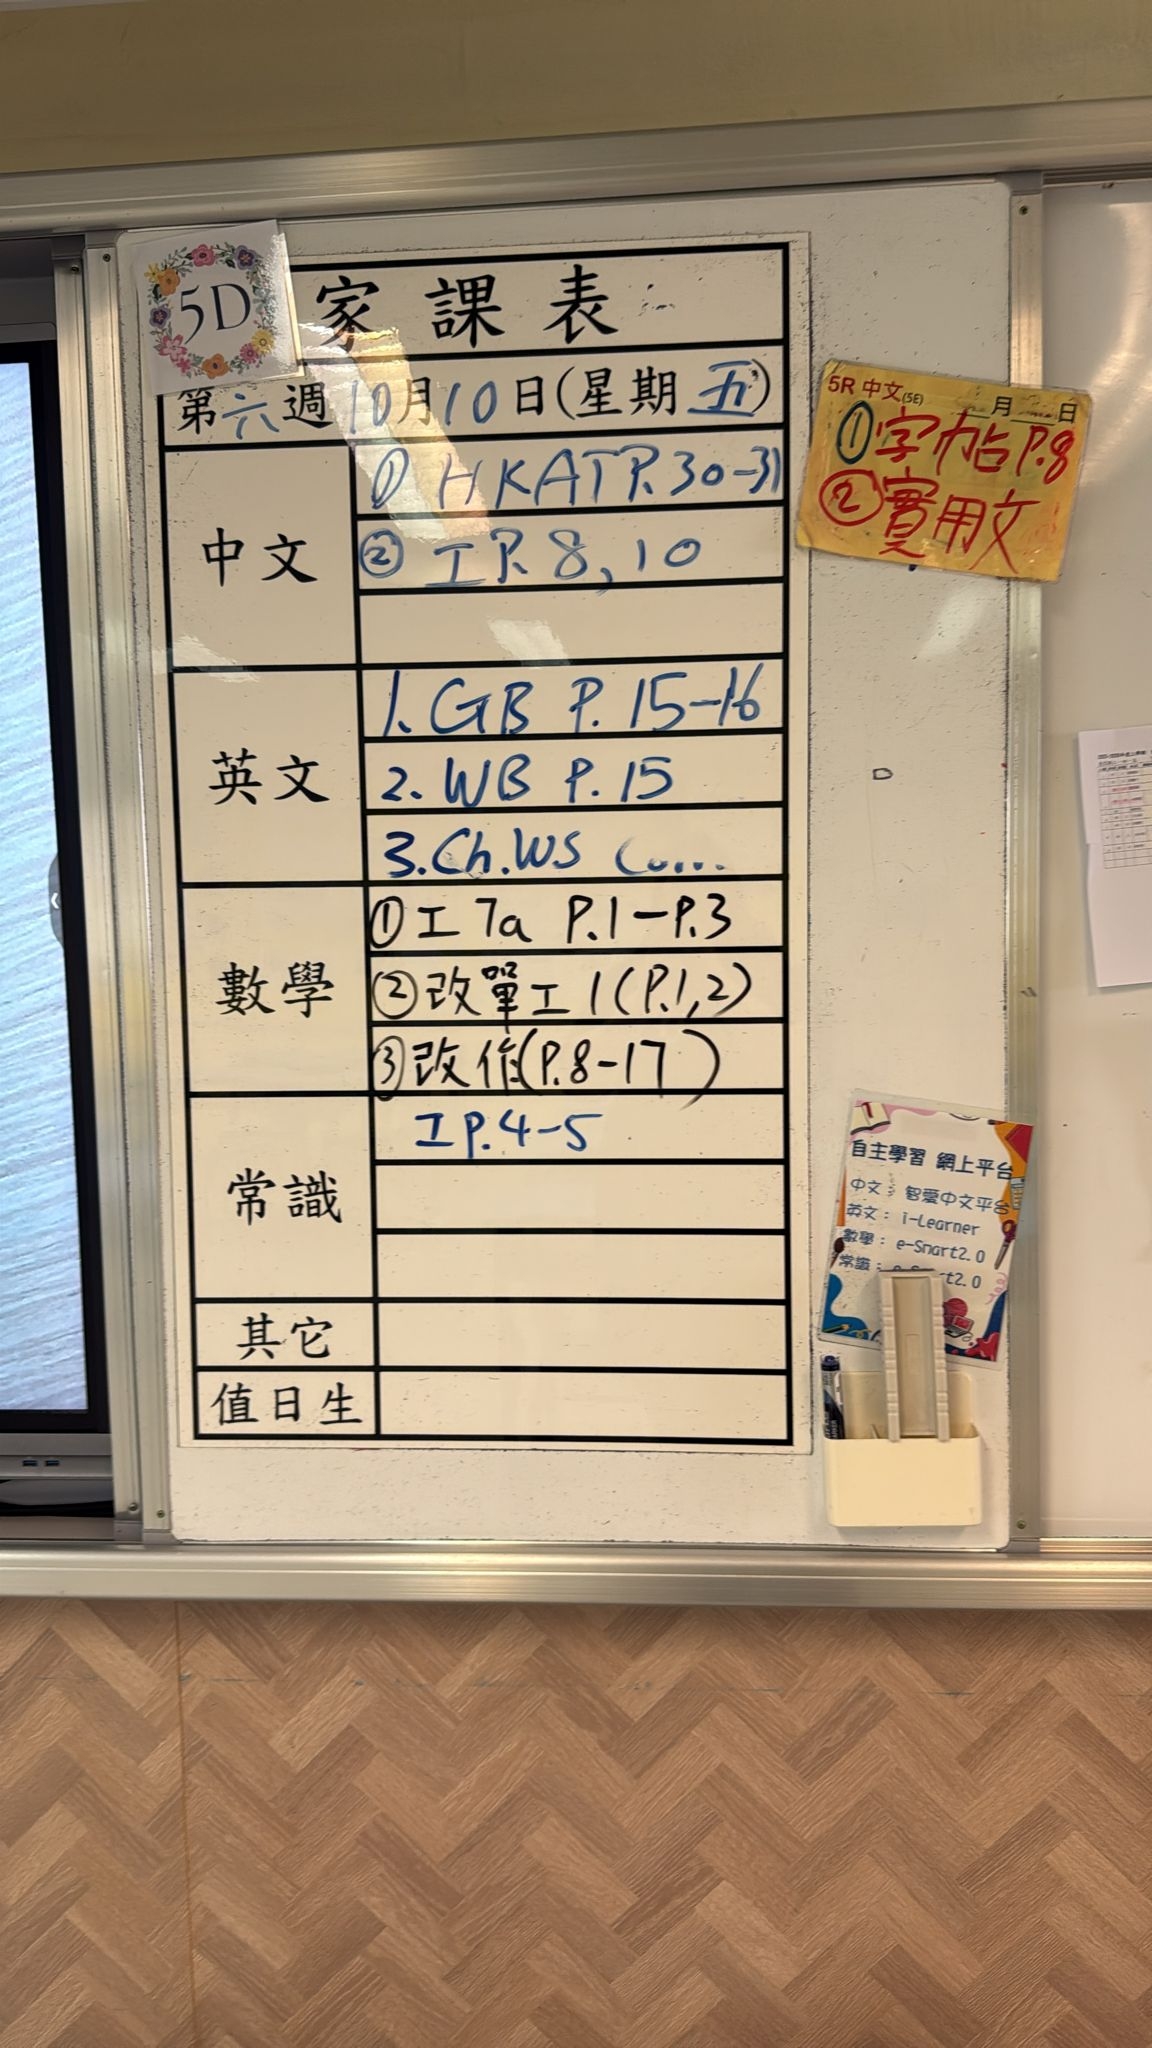 5D
家課表
第六週10月10日(星期五)
中文
① HKAT P.30-31
② 工 P. 8, 10
英文
1. GB P. 15-16
2. WB P. 15
3. Ch.WS (....
數學
① 工 7a P.1-P.3
② 改單工1(P.1,2)
③ 改作(P.8-17)
常識
工 P.4-5
其它
值日生
5R 中文(5E) 月 日
① 字帖 P.8
② 實用文
自主學習 網上平台
中文: 智愛中文平台
英文: i-Learner
數學: e-Smart2.0
常識: